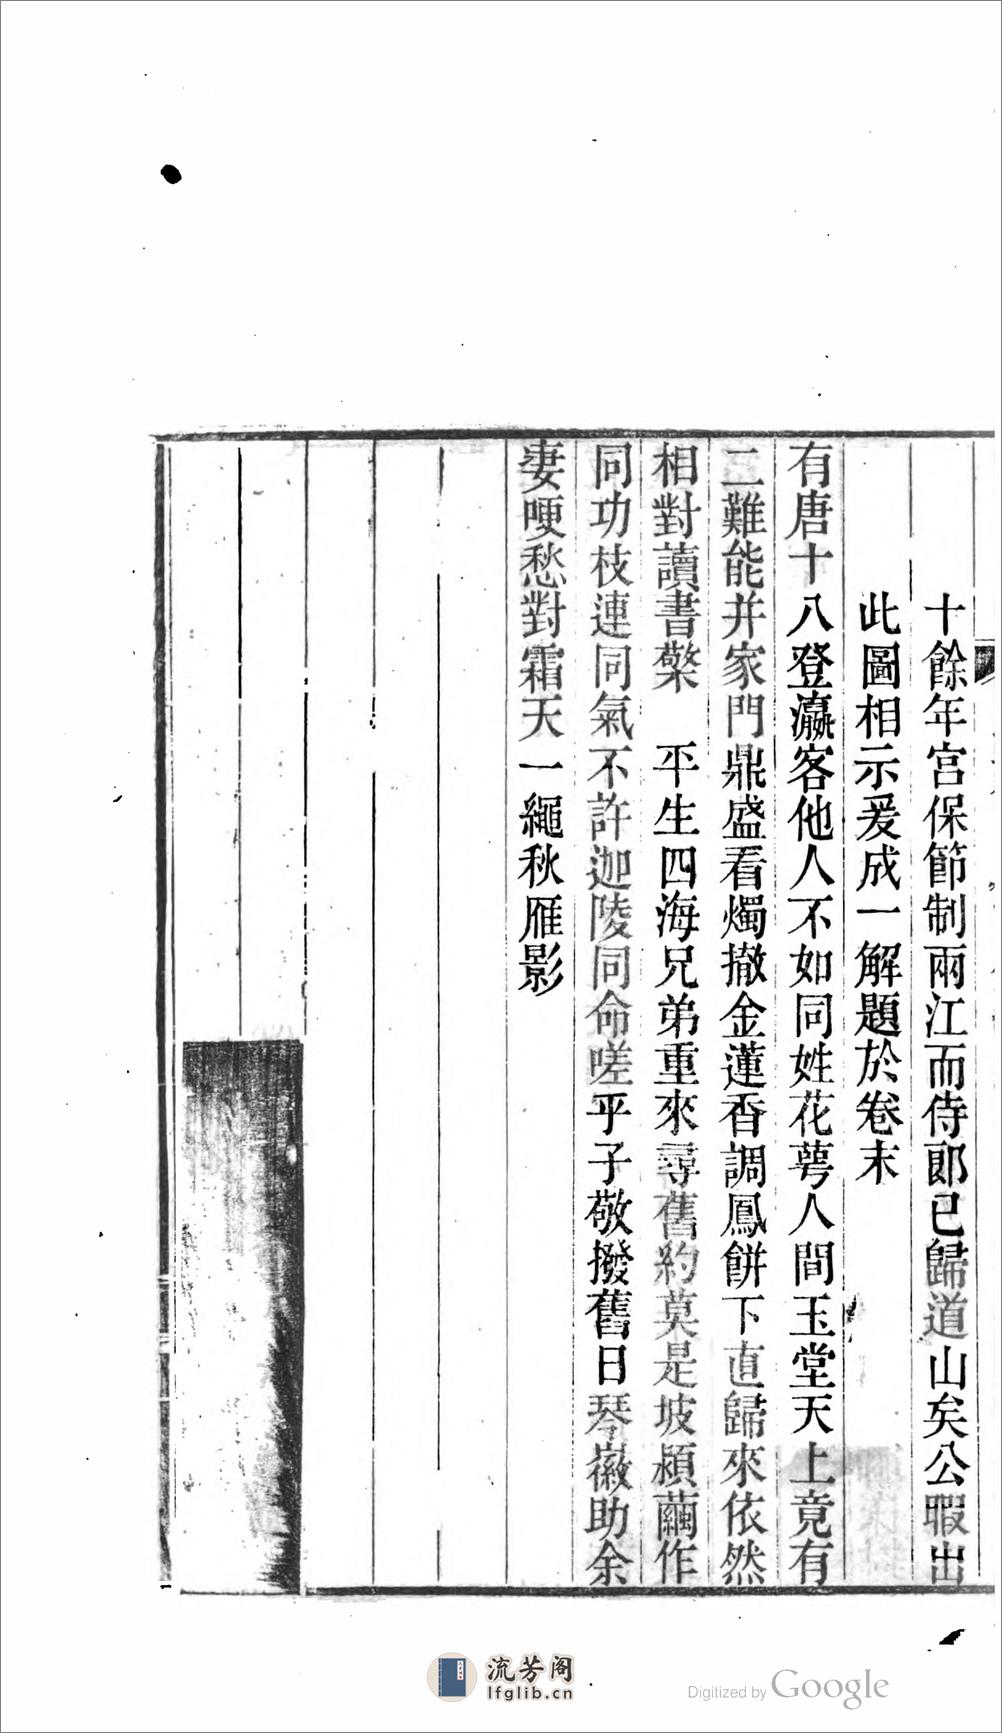 十餘年宮保節制兩江而侍郎已歸道山矣公暇出
此圖相示爰成一解題於卷末
有唐十八登瀛客他人不如同姓花萼人間玉堂天上竟有
二難能并家門鼎盛看燭撤金蓮香調鳳餅下直歸來依然
相對讀書檠　平生四海兄弟重來尋舊約莫是坡潁繭作
同功枝連同氣不許迦陵同命嗟乎子敬撥舊日琴徽助余
淒哽愁對霜天一繩秋雁影
流芳阁
lfglib.cn
Digitized by Google